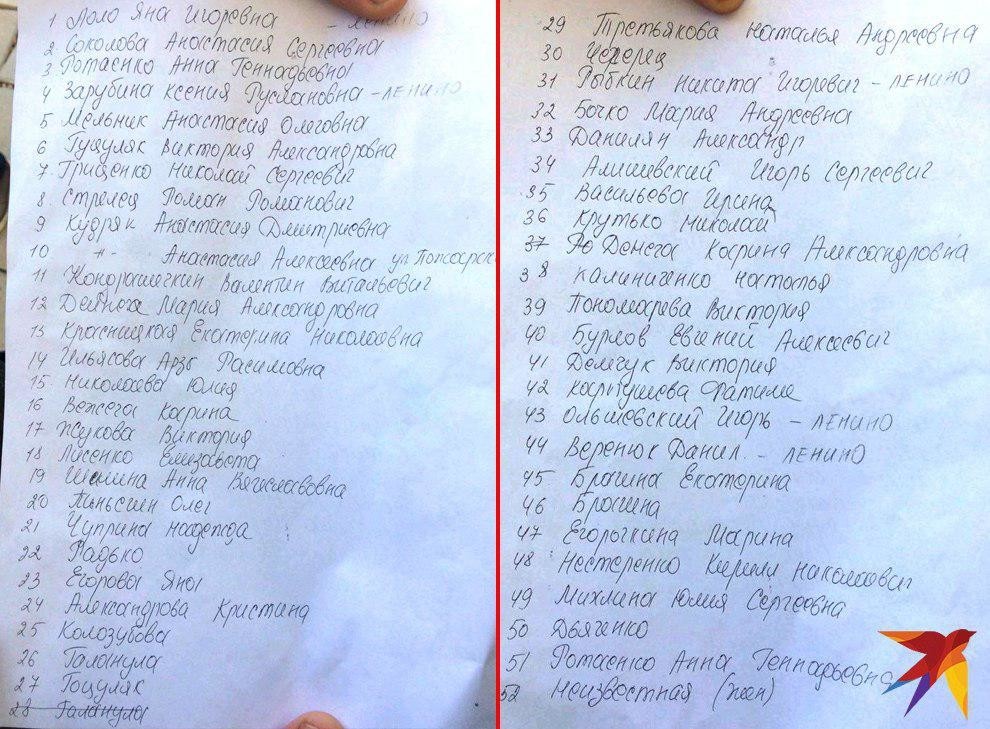 1 Лоло Яна Игоревна - ЛЕНИНО
2 Соколова Анастасия Сергеевна
3 Ротаенко Анна Геннадьевна
4 Зарубина Ксения Руслановна - ЛЕНИНО
5 Мельник Анастасия Олеговна
6 Гуцуляк Виктория Александровна
7 Грищенко Николай Сергеевич
8 Стрелец Роман Романович
9 Кудряк Анастасия Дмитриевна
10 -"- Анастасия Алексеевна ул
11 Валентин Витальевич
12 Мария Александровна
13 Красницкая Екатерина Николаевна
14 Ильясова Арзы Расимовна
15 Николаева Юлия
16 Вежега Карина
17 Жукова Виктория
18 Лисенко Елизавета
19 Шишина Анна Вячеславовна
20 Олег
21 Чуприна Надежда
22 Радько
23 Егорова Яна
24 Александрова Кристина
25 Колозубова
26 Галанула
27 Гоцуляк
28 Галанула
29 Третьякова Наталья Андреевна
30 Черерец
31 Рыбкин Никита Игоревич - ЛЕНИНО
32 Бочко Мария Андреевна
33 Данилян Александр
34 Игорь Сергеевич
35 Васильева Ирина
36 Крутько Николай
37 Денега Карина Александровна
38 Калиниченко Наталья
39 Пономарева Виктория
40 Бурлов Евгений Алексеевич
41 Демчук Виктория
42 Фатиме
43 Ольшевский Игорь - ЛЕНИНО
44 Веренюк Данил. - ЛЕНИНО
45 Брагина Екатерина
46 Брагина
47 Егорочкина Марина
48 Нестеренко Кирилл Николаевич
49 Михлина Юлия Сергеевна
50 Дьяченко
51 Ротаенко Анна Геннадьевна
52 Неизвестная (жен)